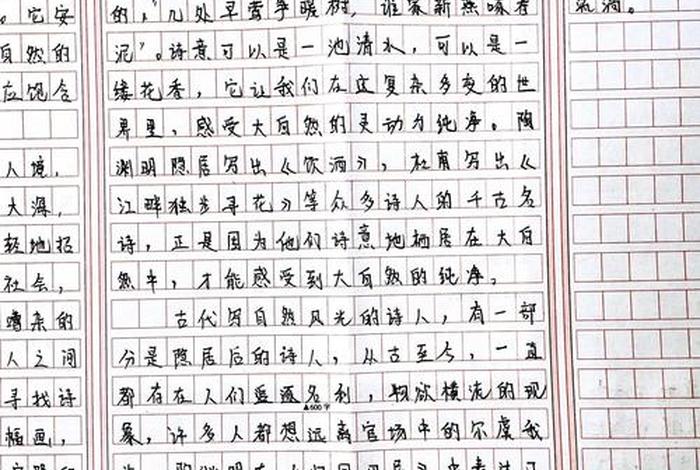 。它安
自然的
应饱含
人境，
大潭，
轻地招
社会，
嘈杂的
人之间
寻找诗
幅画，
的，"几处早莺争暖树，谁家新燕啄春
泥"。诗意可以是一池清水，可以是一
缕花香，它让我们在这复杂多变的世
界里，感受大自然的灵动与纯净。陶
渊明隐居写出《饮酒》，杜甫写出《
江畔独步寻花》等众多诗人的千古名
诗，正是因为他们诗意地栖居在大自
然中，才能感受到大自然的纯净。
古代写自然风光的诗人，有一部
分是隐居后的诗人，从古至今，一直
都存在人们追逐名利，物欲横流的现
▲600字
象，许多人都想远离官场中的尔虞我